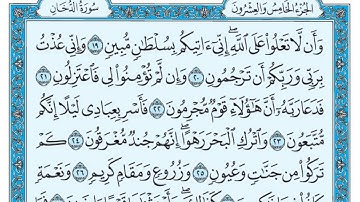 الجزء الخامس والعشرون سورة الدخان
وَأَن لَّا تَعْلُوا۟ عَلَى ٱللَّهِ ۖ إِنِّىٓ ءَاتِيكُم بِسُلْطَٰنٍ مُّبِينٍ ١٩ وَإِنِّى عُذْتُ
بِرَبِّى وَرَبِّكُمْ أَن تَرْجُمُونِ ٢٠ وَإِن لَّمْ تُؤْمِنُوا۟ لِى فَٱعْتَزِلُونِ ٢١
فَدَعَا رَبَّهُۥٓ أَنَّ هَٰٓؤُلَآءِ قَوْمٌ مُّجْرِمُونَ ٢٢ فَأَسْرِ بِعِبَادِى لَيْلًا إِنَّكُم
مُّتَّبَعُونَ ٢٣ وَٱتْرُكِ ٱلْبَحْرَ رَهْوًا ۖ إِنَّهُمْ جُندٌ مُّغْرَقُونَ ٢٤ كَمْ
تَرَكُوا۟ مِن جَنَّٰتٍ وَعُيُونٍ ٢٥ وَزُرُوعٍ وَمَقَامٍ كَرِيمٍ ٢٦ وَنَعْمَةٍ